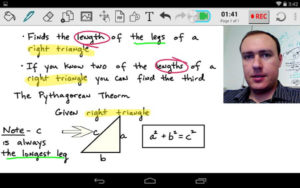 8:42
01:41
Page 1 of 1
REC
• Finds the length of the legs of a
right triangle
• If you know two of the lengths of a
right triangle you can find the third
The Pythagorean Theorm
Given right triangle
Note - c
is always
the longest leg
c
a
b
a² + b² = c²